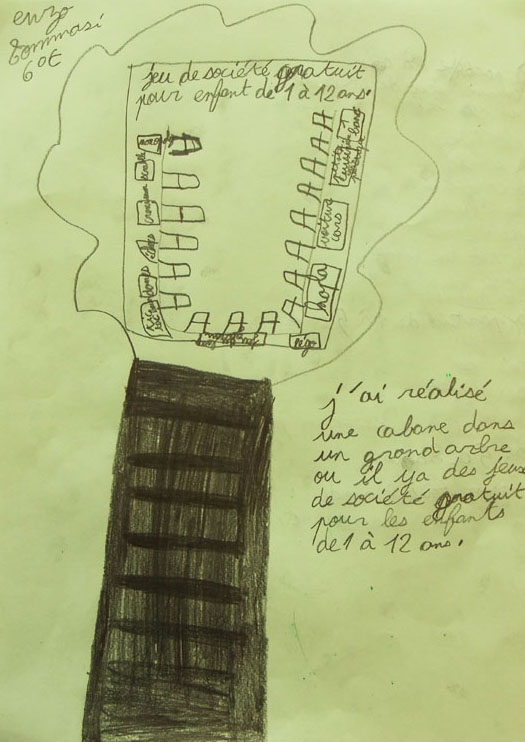 enzo
tommasi
6 ot
jeu de société gratuit
pour enfant de 1 à 12 ans.
voiture
cars
kapla
légo
j'ai réalisé
une cabane dans
un grand arbre
ou il ya des jeux
de société gratuit
pour les enfants
de 1 à 12 ans.